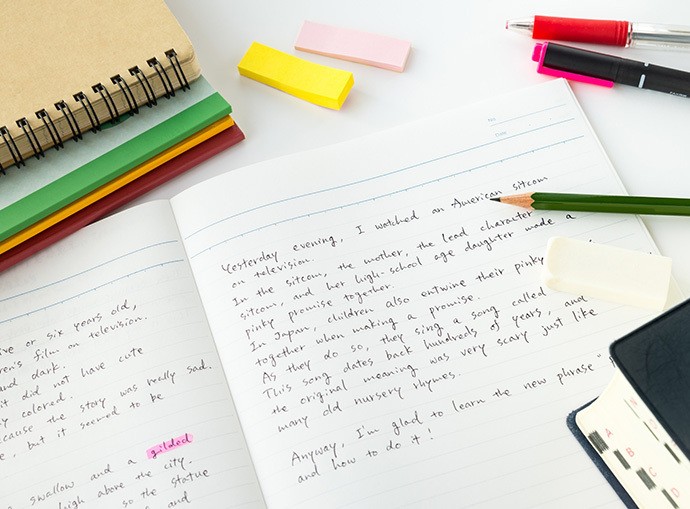 ive or six years old,
ren's film on television.
and dark.
it did not have cute
y colored.
cause the story was really sad.
e, but it seemed to be
swallow and a gilded
high above the city.
so the statue
s and
No.
Date
Yesterday evening, I watched an American sitcom
on television.
In the sitcom, the mother, the lead character
sitcom, and her high-school age daughter made a
pinky promise together.
In Japan, children also entwine their pinky
together when making a promise.
As they do so, they sing a song called
This song dates back hundreds of years, and
the original meaning was very scary just like
many old nursery rhymes.
Anyway, I'm glad to learn the new phrase "
and how to do it!
A
B
C
D